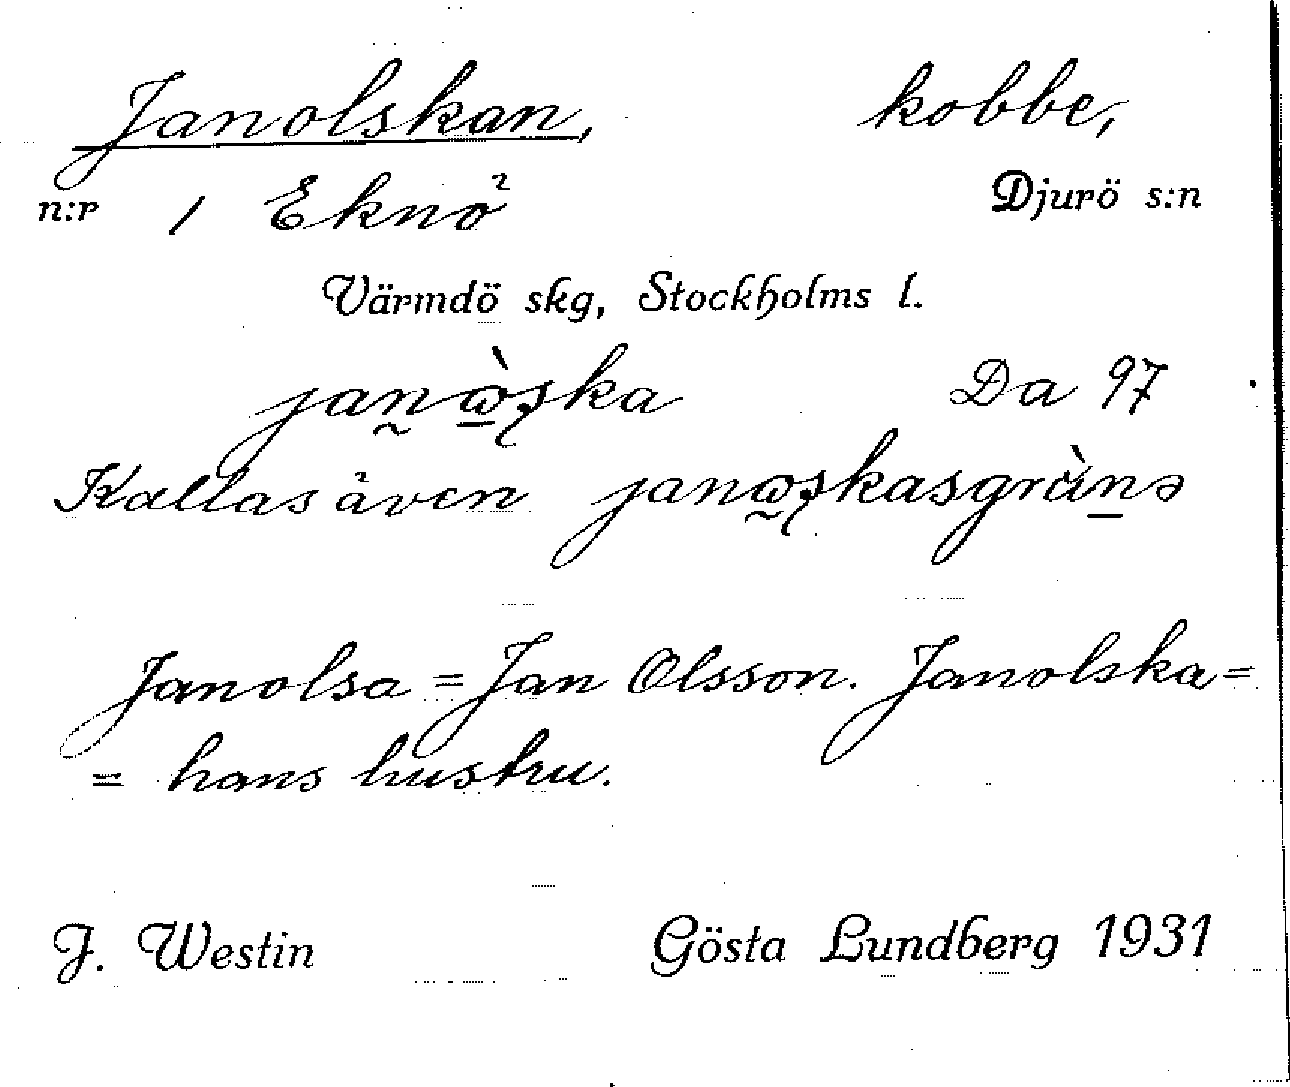 Janolskan, kobbe,
n:r 1 Eknö² Djurö s:n
Värmdö skg, Stockholms l.
Da 97
Kallas även
Janolsa = Jan Olsson. Janolska =
= hans hustru.
J. Westin Gösta Lundberg 1931